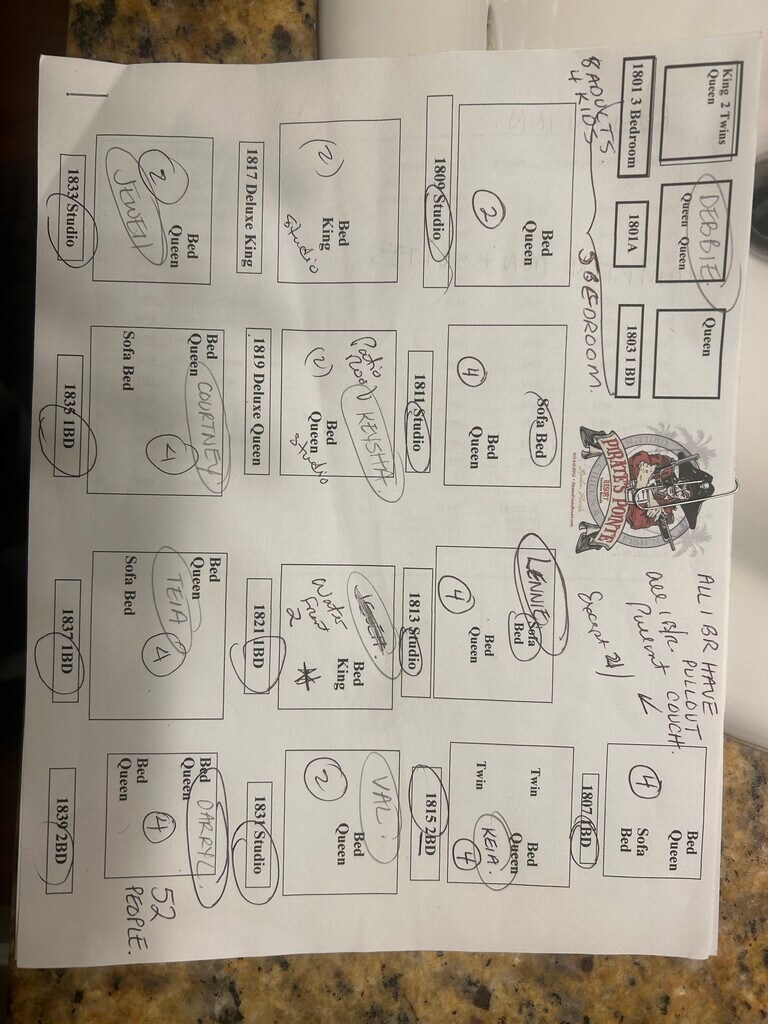 King 2 Twins
Queen
DEBBIE.
Queen Queen
Queen
1801 3 Bedroom
1801A
1803 1 BD
8 ADULTS.
4 KIDS
BEDROOM.
PIRATE'S POINTE
RESORT
ALL 1 BR HAVE
PULLOUT
COUCH.
all 1 B/R.
Pullout
Except 21
Bed
Queen
2
1809 Studio
Sofa Bed
Bed
Queen
4
1811 Studio
LENNIE
Sofa
Bed
Bed
Queen
4
1813 Studio
Bed
Queen
Sofa
Bed
4
1807 1BD
Twin
Bed
Queen
Twin
KEIA.
4
1815 2BD
(2)
Bed
King
Studio
1817 Deluxe King
Patio
Room
KEYSHA.
(2)
Bed
Queen
Studio
1819 Deluxe Queen
Water
Front
2
Bed
King
1821 1BD
VAL.
Bed
Queen
2
1831 Studio
Bed
Queen
2
JEWELL
1833 Studio
Bed
Queen
COURTNEY
Sofa Bed
4
1835 1BD
Bed
Queen
TEIA
Sofa Bed
4
1837 1BD
Bed
Queen
DARRYL.
Bed
Queen
4
1839 2BD
52
PEOPLE.